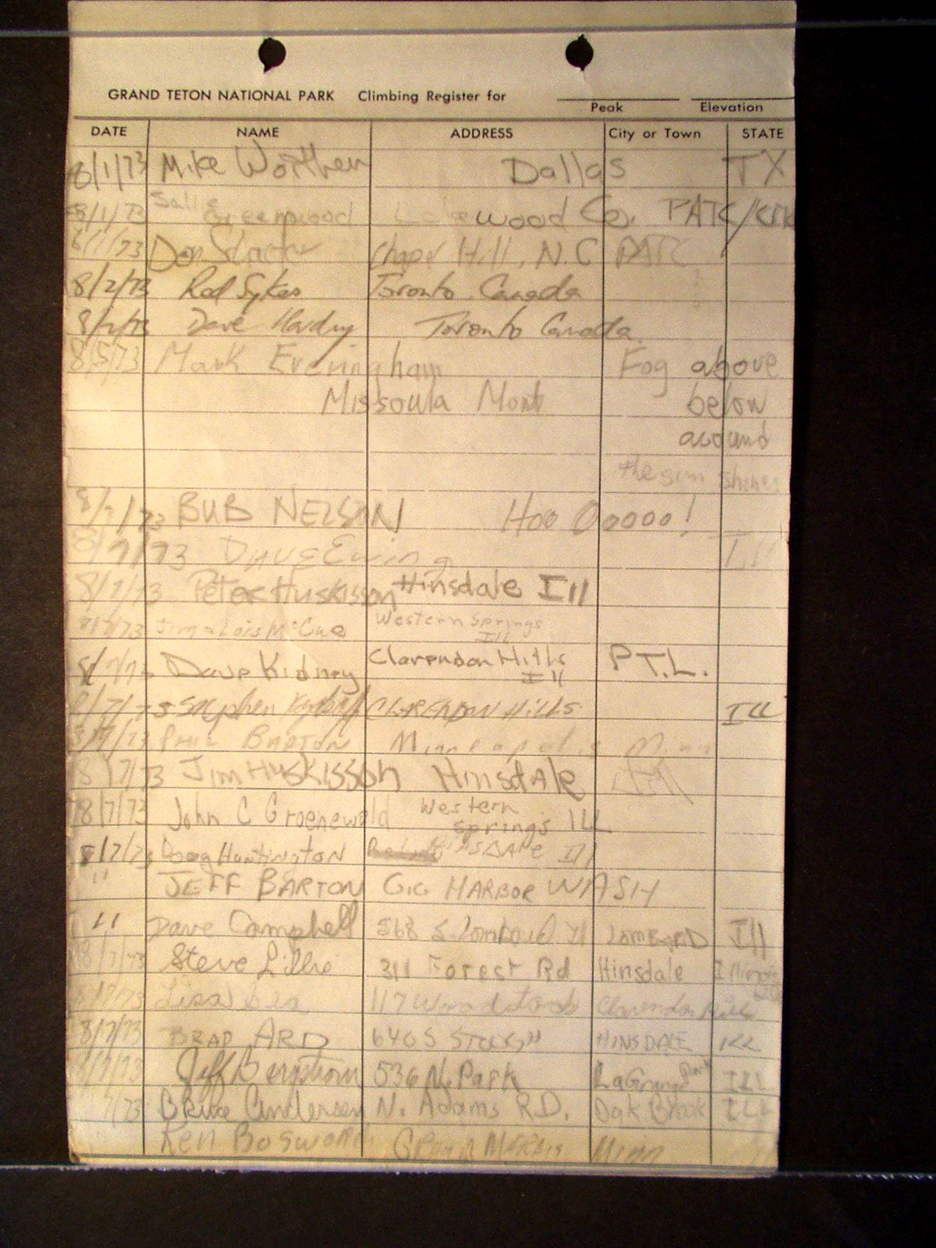 GRAND TETON NATIONAL PARK Climbing Register for
Peak Elevation
DATE NAME ADDRESS City or Town STATE
8/1/73 Mike Worthen Dallas TX
8/1/73 Sallie Greenwood wood Co. PATC/
8/1/73 Don Chapel Hill, N.C PATC
8/2/73 Rod Sykes Toronto, Canada
8/2/73 Dave Hardy Toronto Canada.
8/5/73 Mark Everingham Fog above
Missoula Mont below
around
the sun shines
8/7/73 BUB NELSON! Hoo Ooooo!
8/7/73 DAVE Ewing Ill
8/7/73 Peter Huskisson Hinsdale Ill
8/7/73 Jim & Lois McCue Western Springs
Ill
8/7/73 Dave Kidney Clarendon Hills P.T.L.
Ill
8/7/73 Stephen CLARENDON HillS Ill
8/7/73 PHIL BARTON Minneapolis Minn
8/7/73 Jim HUSKISSON HINSDALE
8/7/73 John C Groenewold Western
springs ILL
8/7/73 Doug Huntington HINSDALE Ill
" JEFF BARTON GIG HARBOR WASH
" Dave Campbell 568 S. Lombard LOMBARD Ill
8/7/73 Steve Lillie 311 Forest Rd Hinsdale Illinois
8/7/73 Lisa 117 Clarendon Hills
8/7/73 BRAD ARD 640 S HINSDALE ILL
8/7/73 Jeff Bergstrom 536 N. Park LaGrange Park ILL
8/7/73 Bruce Andersen N. Adams R.D. Oak Brook ILL
Ken Bosworth Grand Marais Minn